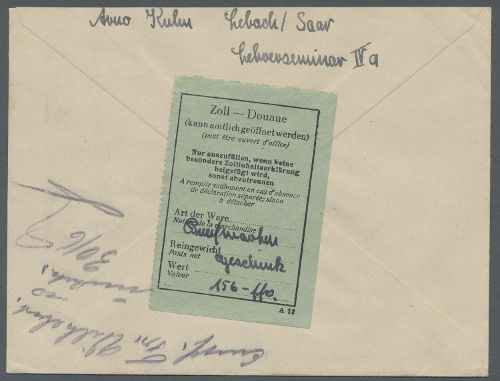 Arno Kuhn Lebach/Saar
Lehrerseminar IVa
Zoll — Douane
(kann amtlich geöffnet werden)
(peut être ouvert d'office)
Nur auszufüllen, wenn keine
besondere Zollinhaltserklärung
beigefügt wird,
sonst abzutrennen
A remplir seulement en cas d'absence
de déclaration séparée; sinon
à détacher
Art der Ware
Nature de la marchandise
Briefmarken
Reingewicht Geschenk
Poids net
Wert
Valeur
156 - ffr.
A 12
30/6